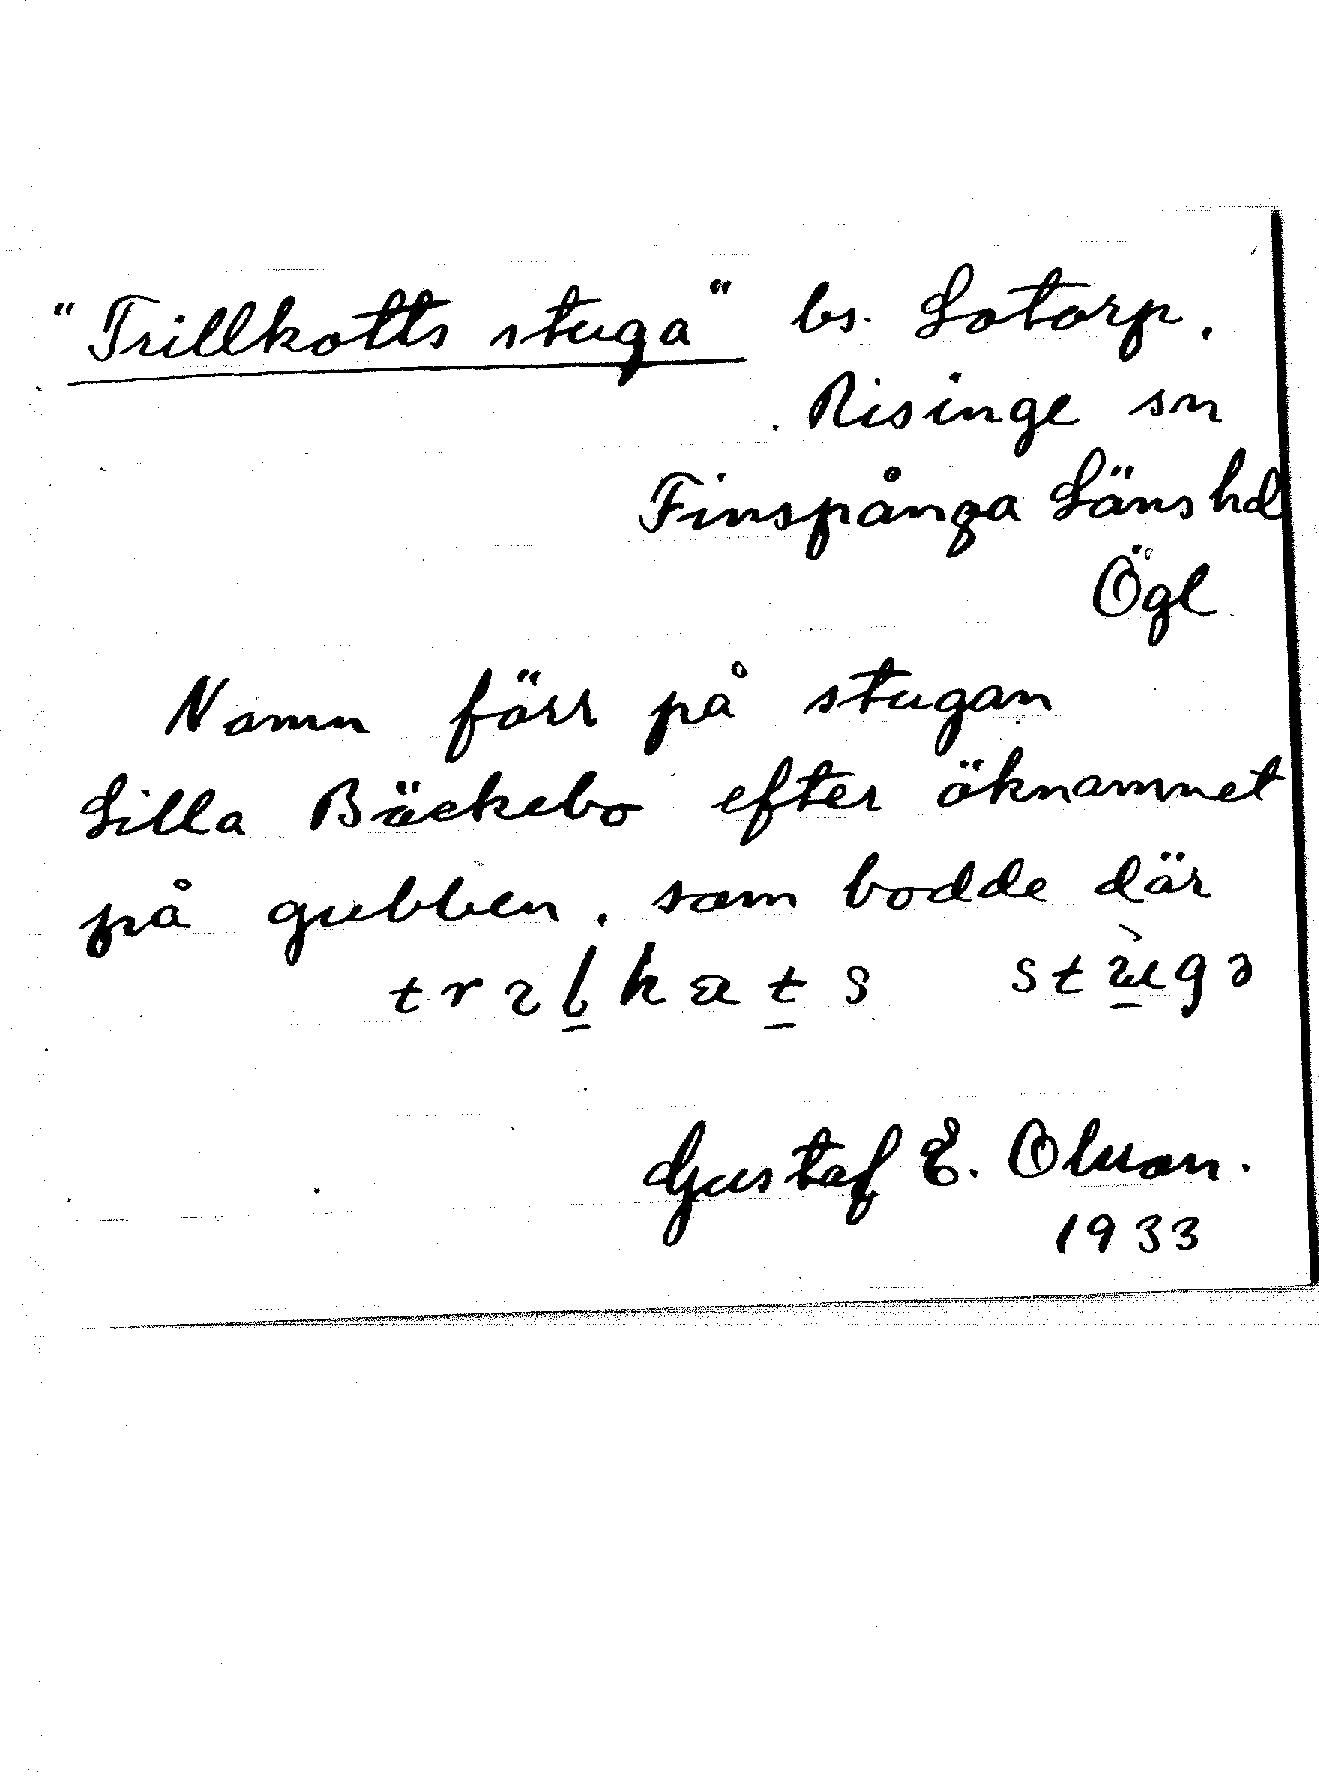 "Trillkotts stuga" bs. Lotorp.
Risinge sn
Finspånga Läns hd
Ögl
Namn förr på stugan
Lilla Bäckebo efter öknamnet
på gubben, som bodde där
Gustaf E. Olsson.
1933